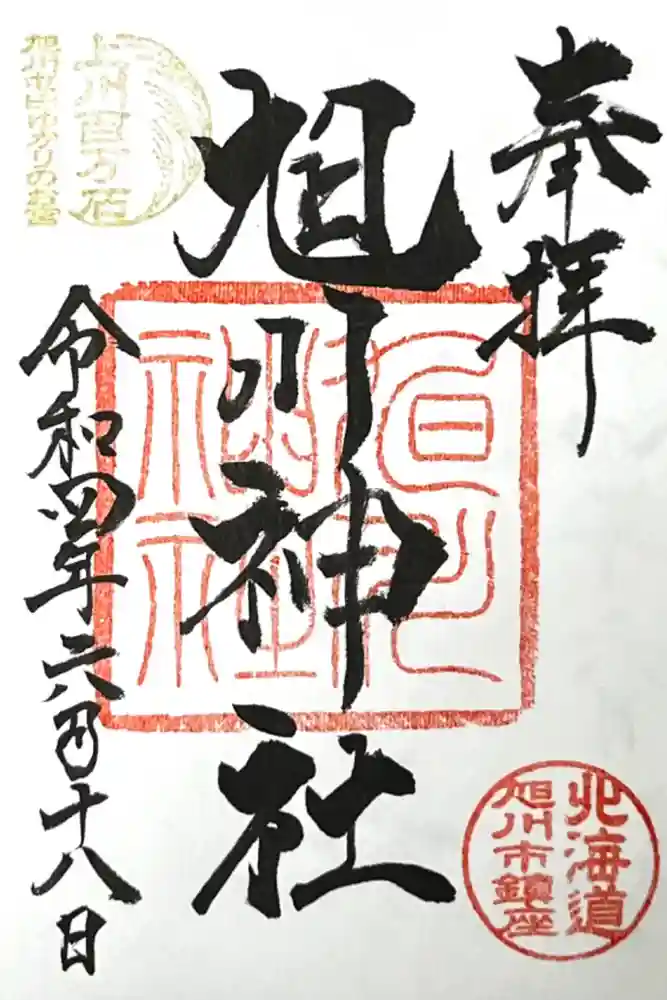 奉拝
旭川神社
旭川
神社
令和四年六月十八日
上川百万石
北海道
旭川市鎮座